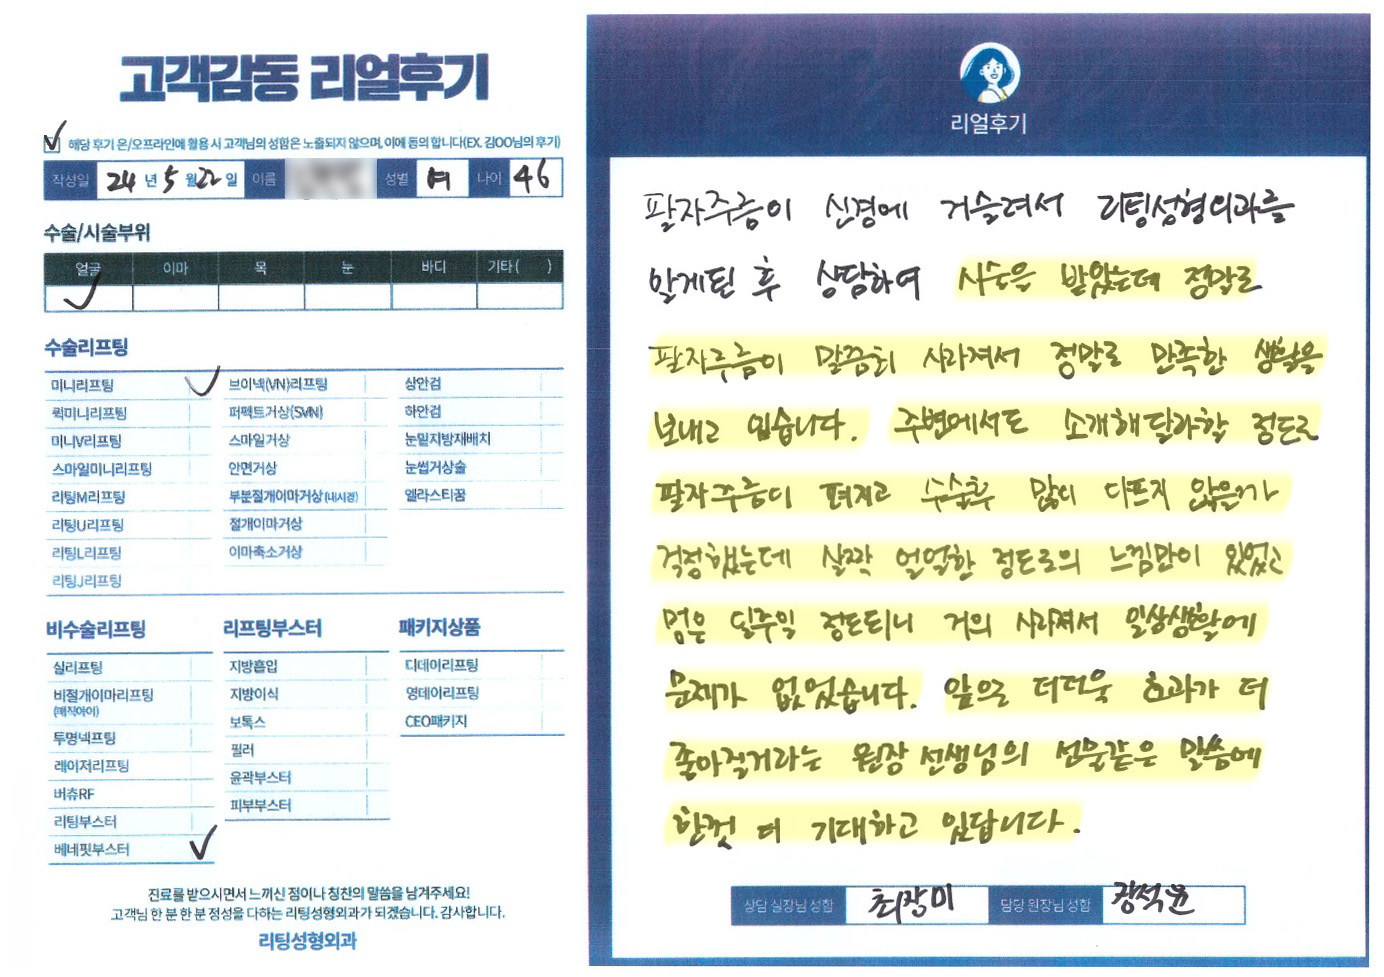 고객감동 리얼후기
해당 후기 온/오프라인에 활용 시 고객님의 성함은 노출되지 않으며, 이에 동의 합니다(EX. 김OO님의 후기)
작성일 24 년 5 월 22 일 이름 성별 여 나이 46
수술/시술부위
얼굴 이마 목 눈 바디 기타( )
수술리프팅
미니리프팅 브이넥(VN)리프팅 상안검
퀵미니리프팅 퍼펙트거상(SVN) 하안검
미니V리프팅 스마일거상 눈밑지방재배치
스마일미니리프팅 안면거상 눈썹거상술
리팅M리프팅 부분절개이마거상(내시경) 엘라스티꿈
리팅U리프팅 절개이마거상
리팅L리프팅 이마축소거상
리팅J리프팅
비수술리프팅 리프팅부스터 패키지상품
실리프팅 지방흡입 디데이리프팅
비절개이마리프팅 지방이식 영데이리프팅
(매직아이)
투명넥프팅 보톡스 CEO패키지
레이저리프팅 필러
버츄RF 윤곽부스터
리팅부스터 피부부스터
베네핏부스터
진료를 받으시면서 느끼신 점이나 칭찬의 말씀을 남겨주세요!
고객님 한 분 한 분 정성을 다하는 리팅성형외과가 되겠습니다. 감사합니다.
리팅성형외과
리얼후기
팔자주름이 신경에 거슬려서 리팅성형외과를
알게된 후 상담하여 시술을 받았는데 정말로
팔자주름이 말끔히 사라져서 정말로 만족한 생활을
보내고 있습니다. 주변에서도 소개해달라할 정도로
팔자주름이 펴지고 수술후 많이 아프지 않을까
걱정했는데 살짝 얼얼한 정도로의 느낌만이 있었고
멍은 일주일 정도되니 거의 사라져서 일상생활에
문제가 없었습니다. 앞으로 더더욱 효과가 더
좋아질거라는 원장 선생님의 선물같은 말씀에
한껏 더 기대하고 있답니다.
상담 실장님 성함 최장미 담당 원장님 성함 장석윤